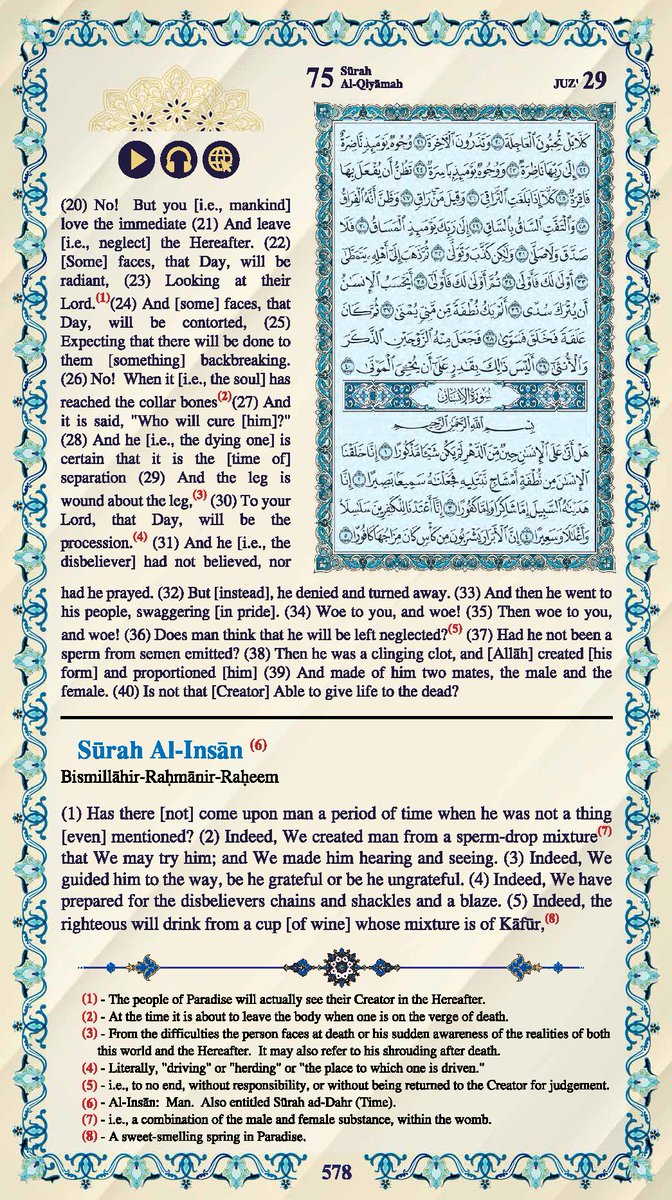 75 Sūrah Al-Qiyāmah
JUZ' 29
كَلَّا بَلْ تُحِبُّونَ ٱلْعَاجِلَةَ ٢٠ وَتَذَرُونَ ٱلْآخِرَةَ ٢١ وُجُوهٌ يَوْمَئِذٍ نَّاضِرَةٌ
٢٢ إِلَىٰ رَبِّهَا نَاظِرَةٌ ٢٣ وَوُجُوهٌ يَوْمَئِذٍ بَاسِرَةٌ ٢٤ تَظُنُّ أَن يُفْعَلَ بِهَا
فَاقِرَةٌ ٢٥ كَلَّا إِذَا بَلَغَتِ ٱلتَّرَاقِيَ ٢٦ وَقِيلَ مَنْ رَاقٍ ٢٧ وَظَنَّ أَنَّهُ ٱلْفِرَاقُ
٢٨ وَٱلْتَفَّتِ ٱلسَّاقُ بِٱلسَّاقِ ٢٩ إِلَىٰ رَبِّكَ يَوْمَئِذٍ ٱلْمَسَاقُ ٣٠ فَلَا
صَدَّقَ وَلَا صَلَّىٰ ٣١ وَلَٰكِن كَذَّبَ وَتَوَلَّىٰ ٣٢ ثُمَّ ذَهَبَ إِلَىٰ أَهْلِهِۦ يَتَمَطَّىٰ
٣٣ أَوْلَىٰ لَكَ فَأَوْلَىٰ ٣٤ ثُمَّ أَوْلَىٰ لَكَ فَأَوْلَىٰ ٣٥ أَيَحْسَبُ ٱلْإِنسَٰنُ
أَن يُتْرَكَ سُدًى ٣٦ أَلَمْ يَكُ نُطْفَةً مِّن مَّنِىٍّ يُمْنَىٰ ٣٧ ثُمَّ كَانَ
عَلَقَةً فَخَلَقَ فَسَوَّىٰ ٣٨ فَجَعَلَ مِنْهُ ٱلزَّوْجَيْنِ ٱلذَّكَرَ
وَٱلْأُنثَىٰٓ ٣٩ أَلَيْسَ ذَٰلِكَ بِقَٰدِرٍ عَلَىٰٓ أَن يُحْـِۧىَ ٱلْمَوْتَىٰ ٤٠
سُورَةُ الإِنسَانِ
بِسْمِ ٱللَّهِ ٱلرَّحْمَٰنِ ٱلرَّحِيمِ
هَلْ أَتَىٰ عَلَى ٱلْإِنسَٰنِ حِينٌ مِّنَ ٱلدَّهْرِ لَمْ يَكُن شَيْـًٔا مَّذْكُورًا ١ إِنَّا خَلَقْنَا
ٱلْإِنسَٰنَ مِن نُّطْفَةٍ أَمْشَاجٍ نَّبْتَلِيهِ فَجَعَلْنَٰهُ سَمِيعًۢا بَصِيرًا ٢ إِنَّا
هَدَيْنَٰهُ ٱلسَّبِيلَ إِمَّا شَاكِرًا وَإِمَّا كَفُورًا ٣ إِنَّآ أَعْتَدْنَا لِلْكَٰفِرِينَ سَلَٰسِلَا۟
وَأَغْلَٰلًا وَسَعِيرًا ٤ إِنَّ ٱلْأَبْرَارَ يَشْرَبُونَ مِن كَأْسٍ كَانَ مِزَاجُهَا كَافُورًا ٥
(20) No! But you [i.e., mankind]
love the immediate (21) And leave
[i.e., neglect] the Hereafter. (22)
[Some] faces, that Day, will be
radiant, (23) Looking at their
Lord.(1)(24) And [some] faces, that
Day, will be contorted, (25)
Expecting that there will be done to
them [something] backbreaking.
(26) No! When it [i.e., the soul] has
reached the collar bones(2)(27) And
it is said, "Who will cure [him]?"
(28) And he [i.e., the dying one] is
certain that it is the [time of]
separation (29) And the leg is
wound about the leg,(3) (30) To your
Lord, that Day, will be the
procession.(4) (31) And he [i.e., the
disbeliever] had not believed, nor
had he prayed. (32) But [instead], he denied and turned away. (33) And then he went to
his people, swaggering [in pride]. (34) Woe to you, and woe! (35) Then woe to you,
and woe! (36) Does man think that he will be left neglected?(5) (37) Had he not been a
sperm from semen emitted? (38) Then he was a clinging clot, and [Allāh] created [his
form] and proportioned [him] (39) And made of him two mates, the male and the
female. (40) Is not that [Creator] Able to give life to the dead?
Sūrah Al-Insān (6)
Bismillāhir-Raḥmānir-Raḥeem
(1) Has there [not] come upon man a period of time when he was not a thing
[even] mentioned? (2) Indeed, We created man from a sperm-drop mixture(7)
that We may try him; and We made him hearing and seeing. (3) Indeed, We
guided him to the way, be he grateful or be he ungrateful. (4) Indeed, We have
prepared for the disbelievers chains and shackles and a blaze. (5) Indeed, the
righteous will drink from a cup [of wine] whose mixture is of Kāfūr,(8)
(1) - The people of Paradise will actually see their Creator in the Hereafter.
(2) - At the time it is about to leave the body when one is on the verge of death.
(3) - From the difficulties the person faces at death or his sudden awareness of the realities of both
this world and the Hereafter. It may also refer to his shrouding after death.
(4) - Literally, "driving" or "herding" or "the place to which one is driven."
(5) - i.e., to no end, without responsibility, or without being returned to the Creator for judgement.
(6) - Al-Insān: Man. Also entitled Sūrah ad-Dahr (Time).
(7) - i.e., a combination of the male and female substance, within the womb.
(8) - A sweet-smelling spring in Paradise.
578